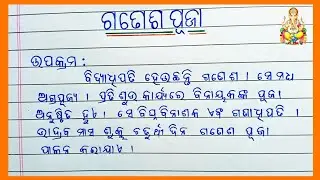 ଗଣେଶ ପୂଜା
ଉପକ୍ରମ :
ବିଦ୍ୟାଧିପତି ହେଉଛନ୍ତି ଗଣେଶ । ସେ ମଧ୍ୟ
ଅଗ୍ରପୂଜ୍ୟ । ପ୍ରତି ଶୁଭ କାର୍ଯ୍ୟରେ ବିନାୟକଙ୍କ ପୂଜା
ଅନୁଷ୍ଠିତ ହୁଏ । ସେ ବିଘ୍ନ ବିନାଶକ ଏବଂ ଗଣାଧିପତି ।
ଭାଦ୍ରବ ମାସ ଶୁକ୍ଳ ଚତୁର୍ଥୀ ଦିନ ଗଣେଶ ପୂଜା
ପାଳନ କରାଯାଏ ।